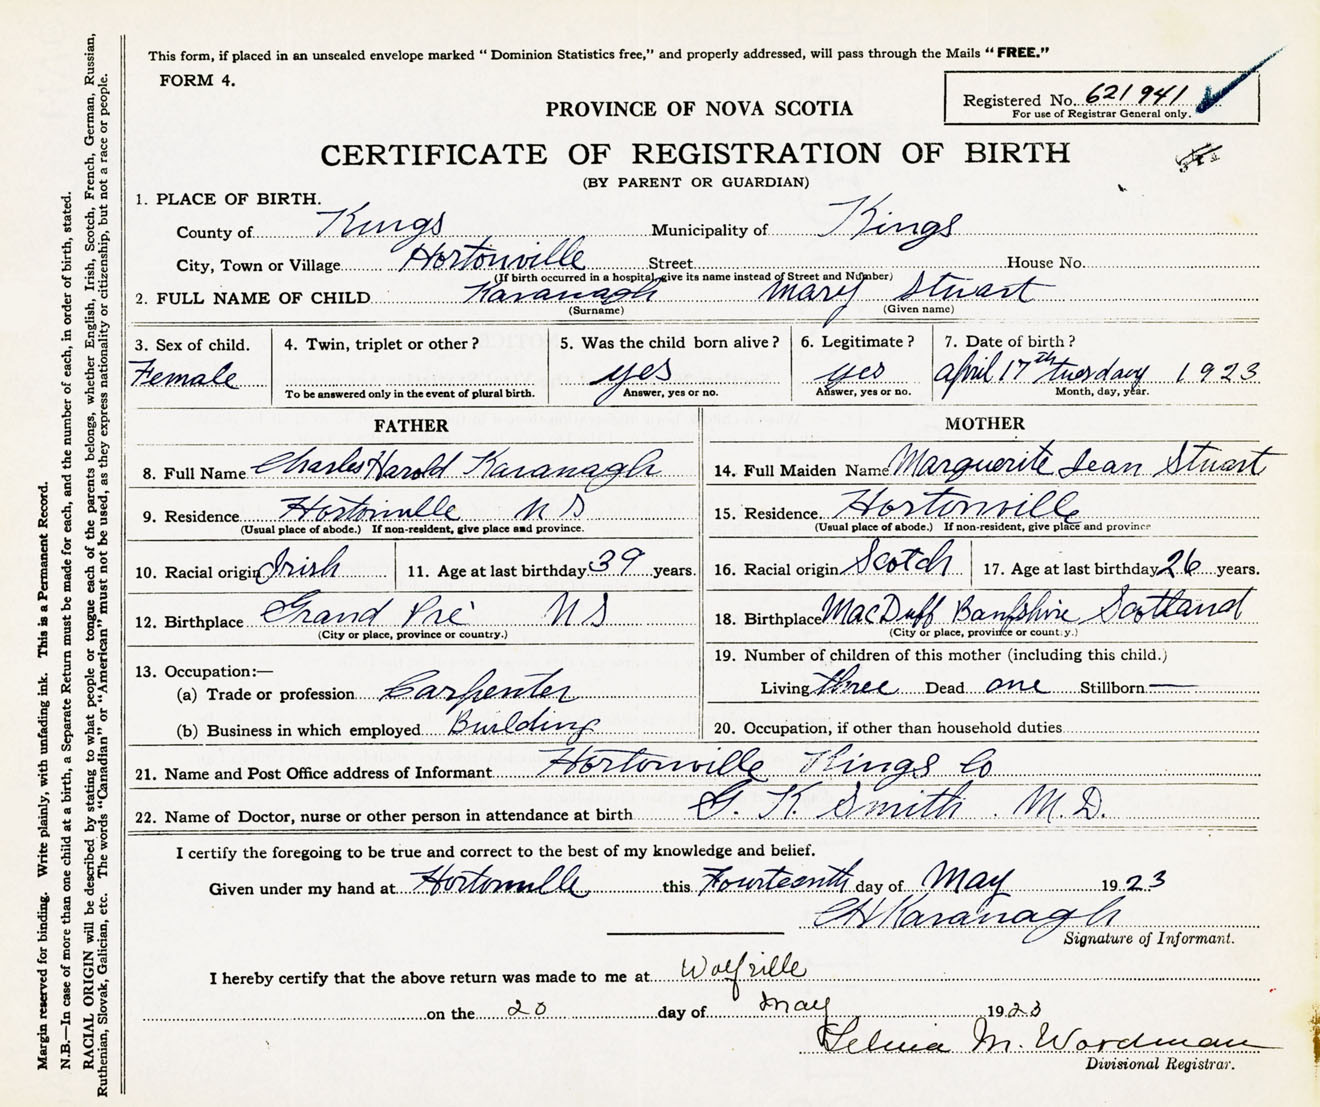 This form, if placed in an unsealed envelope marked “ Dominion Statistics free,” and properly addressed, will pass through the Mails “ FREE.”
FORM 4.
Registered No. 621941
For use of Registrar General only.
PROVINCE OF NOVA SCOTIA
CERTIFICATE OF REGISTRATION OF BIRTH
(BY PARENT OR GUARDIAN)
1. PLACE OF BIRTH.
County of Kings Municipality of Kings
City, Town or Village Hortonville Street House No.
(If birth occurred in a hospital, give its name instead of Street and Number)
2. FULL NAME OF CHILD Kavanagh Mary Stuart
(Surname) (Given name)
3. Sex of child. 4. Twin, triplet or other? 5. Was the child born alive? 6. Legitimate? 7. Date of birth?
Female yes yes April 17th tuesday 1923
To be answered only in the event of plural birth. Answer, yes or no. Answer, yes or no. Month, day, year.
FATHER MOTHER
8. Full Name Charles Harold Kavanagh 14. Full Maiden Name Marguerite Jean Stuart
9. Residence Hortonville N S 15. Residence. Hortonville
(Usual place of abode.) If non-resident, give place and province. (Usual place of abode.) If non-resident, give place and province
10. Racial origin Irish 11. Age at last birthday 39 years. 16. Racial origin Scotch 17. Age at last birthday 26 years.
12. Birthplace Grand Pré N S 18. Birthplace MacDuff Banfshire Scotland
(City or place, province or country.) (City or place, province or county.)
13. Occupation:— 19. Number of children of this mother (including this child.)
(a) Trade or profession Carpenter Living three Dead one Stillborn —
(b) Business in which employed Building 20. Occupation, if other than household duties
21. Name and Post Office address of Informant Hortonville Kings Co
22. Name of Doctor, nurse or other person in attendance at birth G. K. Smith. M.D.
I certify the foregoing to be true and correct to the best of my knowledge and belief.
Given under my hand at Hortonville this Fourteenth day of May 1923
CH Kavanagh
Signature of Informant.
I hereby certify that the above return was made to me at Wolfville
on the 20 day of May 1923
M. Wordman
Divisional Registrar.
Margin reserved for binding. Write plainly, with unfading ink. This is a Permanent Record.
N.B.—In case of more than one child at a birth, a Separate Return must be made for each, and the number of each, in order of birth, stated.
RACIAL ORIGIN will be described by stating to what people or tongue each of the parents belongs, whether English, Irish, Scotch, French, German, Russian,
Ruthenian, Slovak, Galician, etc. The words “Canadian” or “American” must not be used, as they express nationality or citizenship, but not a race or people.